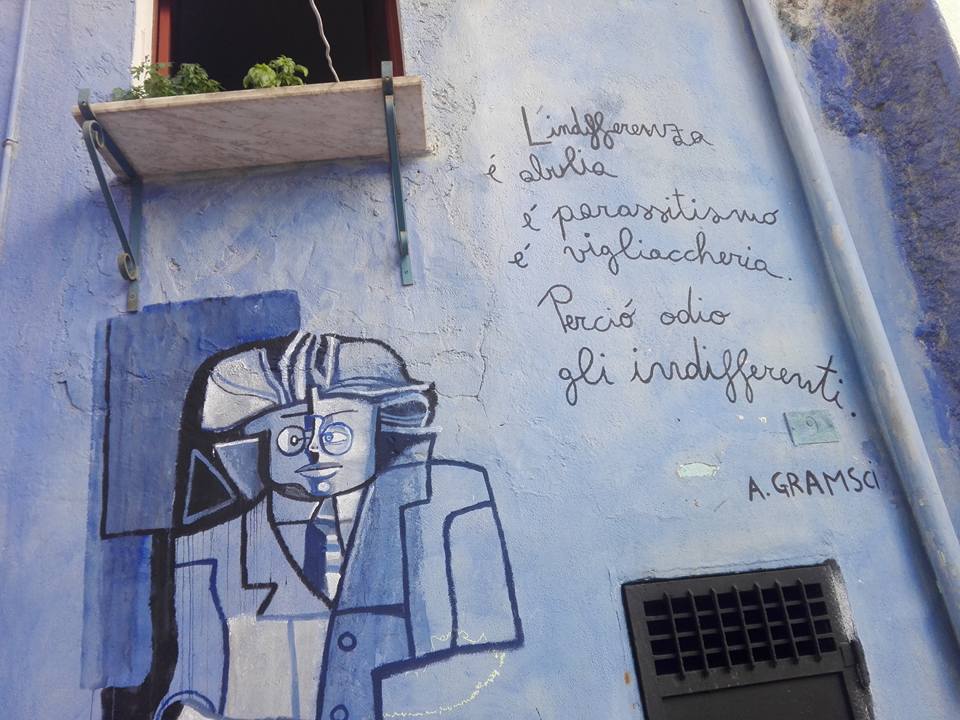 L'indifferenza
é abulia
é parassitismo
é vigliaccheria.
Perció odio
gli indifferenti.
A. GRAMSCI